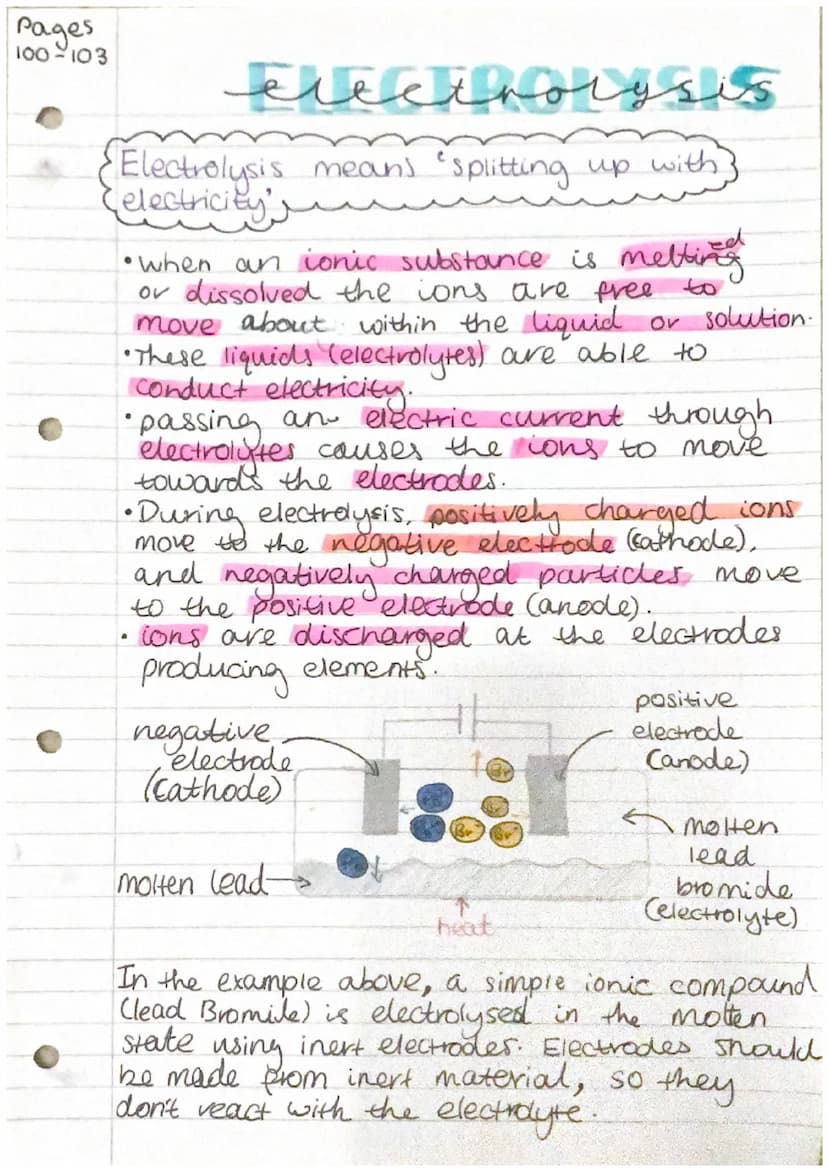 Pages
100-103
ELECTROLYSIS
electrolysis
Electrolysis means 'splitting up with
electricity'
•when an ionic substance is melted
or dissolved the ions are free to
move about within the liquid or solution.
•These liquids (electrolytes) are able to
conduct electricity.
•passing an electric current through
electrolytes causes the ions to move
towards the electrodes.
•During electrolysis, positively charged ions
move to the negative electrode (cathode),
and negatively charged particles move
to the positive electrode (anode).
• ions are discharged at the electrodes
producing elements.
negative
electrode
(Cathode)
positive
electrode
(anode)
Br
Br⁻
Br⁻
molten lead
molten
lead
bromide
(electrolyte)
heat
In the example above, a simple ionic compound
(lead Bromide) is electrolysed in the molten
state using inert electrodes. Electrodes should
be made from inert material, so they
don't react with the electrolyte.